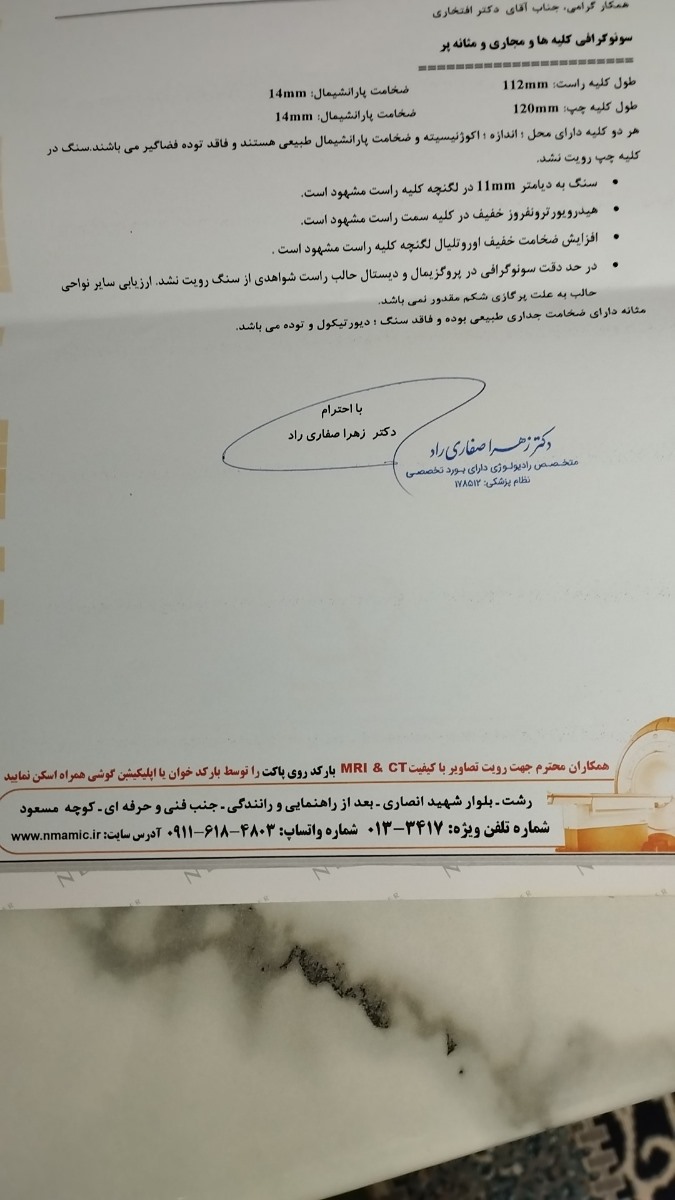 همکار گرامی، جناب آقای دکتر افتخاری
سونوگرافی کلیه ها و مجاری و مثانه پر
======================
طول کلیه راست: 112mm ضخامت پارانشیمال: 14mm
طول کلیه چپ: 120mm ضخامت پارانشیمال: 14mm
هر دو کلیه دارای محل ؛ اندازه ؛ اکوژنیسیته و ضخامت پارانشیمال طبیعی هستند و فاقد توده فضاگیر می باشند.سنگ در
کلیه چپ رویت نشد.
• سنگ به دیامتر 11mm در لگنچه کلیه راست مشهود است.
• هیدرویورترونفروز خفیف در کلیه سمت راست مشهود است.
• افزایش ضخامت خفیف اوروتلیال لگنچه کلیه راست مشهود است .
• در حد دقت سونوگرافی در پروگزیمال و دیستال حالب راست شواهدی از سنگ رویت نشد. ارزیابی سایر نواحی
حالب به علت پرگازی شکم مقدور نمی باشد.
مثانه دارای ضخامت جداری طبیعی بوده و فاقد سنگ ؛ دیورتیکول و توده می باشد.
با احترام
دکتر زهرا صفاری راد
دکتر زهرا صفاری راد
متخصص رادیولوژی دارای بورد تخصصی
نظام پزشکی: ۱۷۸۵۱۲
همکاران محترم جهت رویت تصاویر با کیفیت MRI & CT بارکد روی پاکت را توسط بارکد خوان یا اپلیکیشن گوشی همراه اسکن نمایید
رشت ـ بلوار شهید انصاری ـ بعد از راهنمایی و رانندگی ـ جنب فنی و حرفه ای ـ کوچه مسعود
شماره تلفن ویژه: ۳۴۱۷–۰۱۳ شماره واتساپ: ۴۸۰۳–۶۱۸–۰۹۱۱ آدرس سایت: www.nmamic.ir